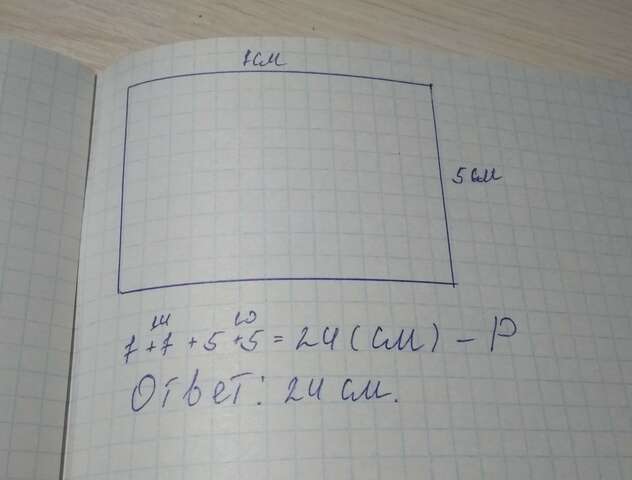 7 см
5 см
14 10
7 + 7 + 5 + 5 = 24 (см) – P
Ответ: 24 см.